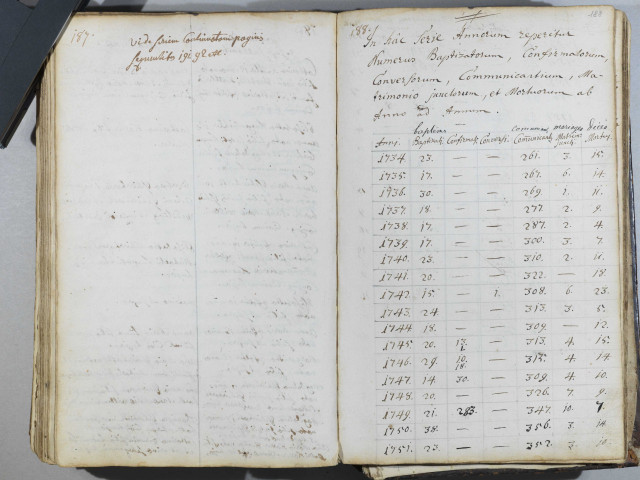 187.
vide seriem Continuatam paginis
sequentib. 191. 92 etc.
188.
188
In hac Serie Annorum reperitur
Numerus Baptizatorum, Confirmatorum,
Conversorum, Communicantium, Ma-
trimonio junctorum, et Mortuorum ab
Anno ad Annum.
Anni. Baptizati Confirmati Conversi. Communicantes Mortui.
1734 23. — — 261. 3. 15.
1735. 17. — — 267. 6. 14.
1736. 30. — — 269. 1. 11.
1737. 18. — — 277. 2. 9.
1738. 17. — — 287. 2. 4.
1739. 17. — — 300. 3. 7.
1740. 23. — — 310. 2. 11.
1741. 20. — — 322. — 18.
1742. 15. — 1. 308. 6. 23.
1743. 24. — — 313. 3. 5.
1744 18. — — 309. — 12.
1745. 20. — 313. 4. 15.
1746. 29. 10. 18. — 315. 4. 14
1747. 14 30. — 309. 4. 10.
1748. 20. — — 326. 7. 9.
1749. 21. 283. — 347. 10. 7.
1750. 38. — — 356. 3. 14.
1751. 23. — — 352. 3. 10.